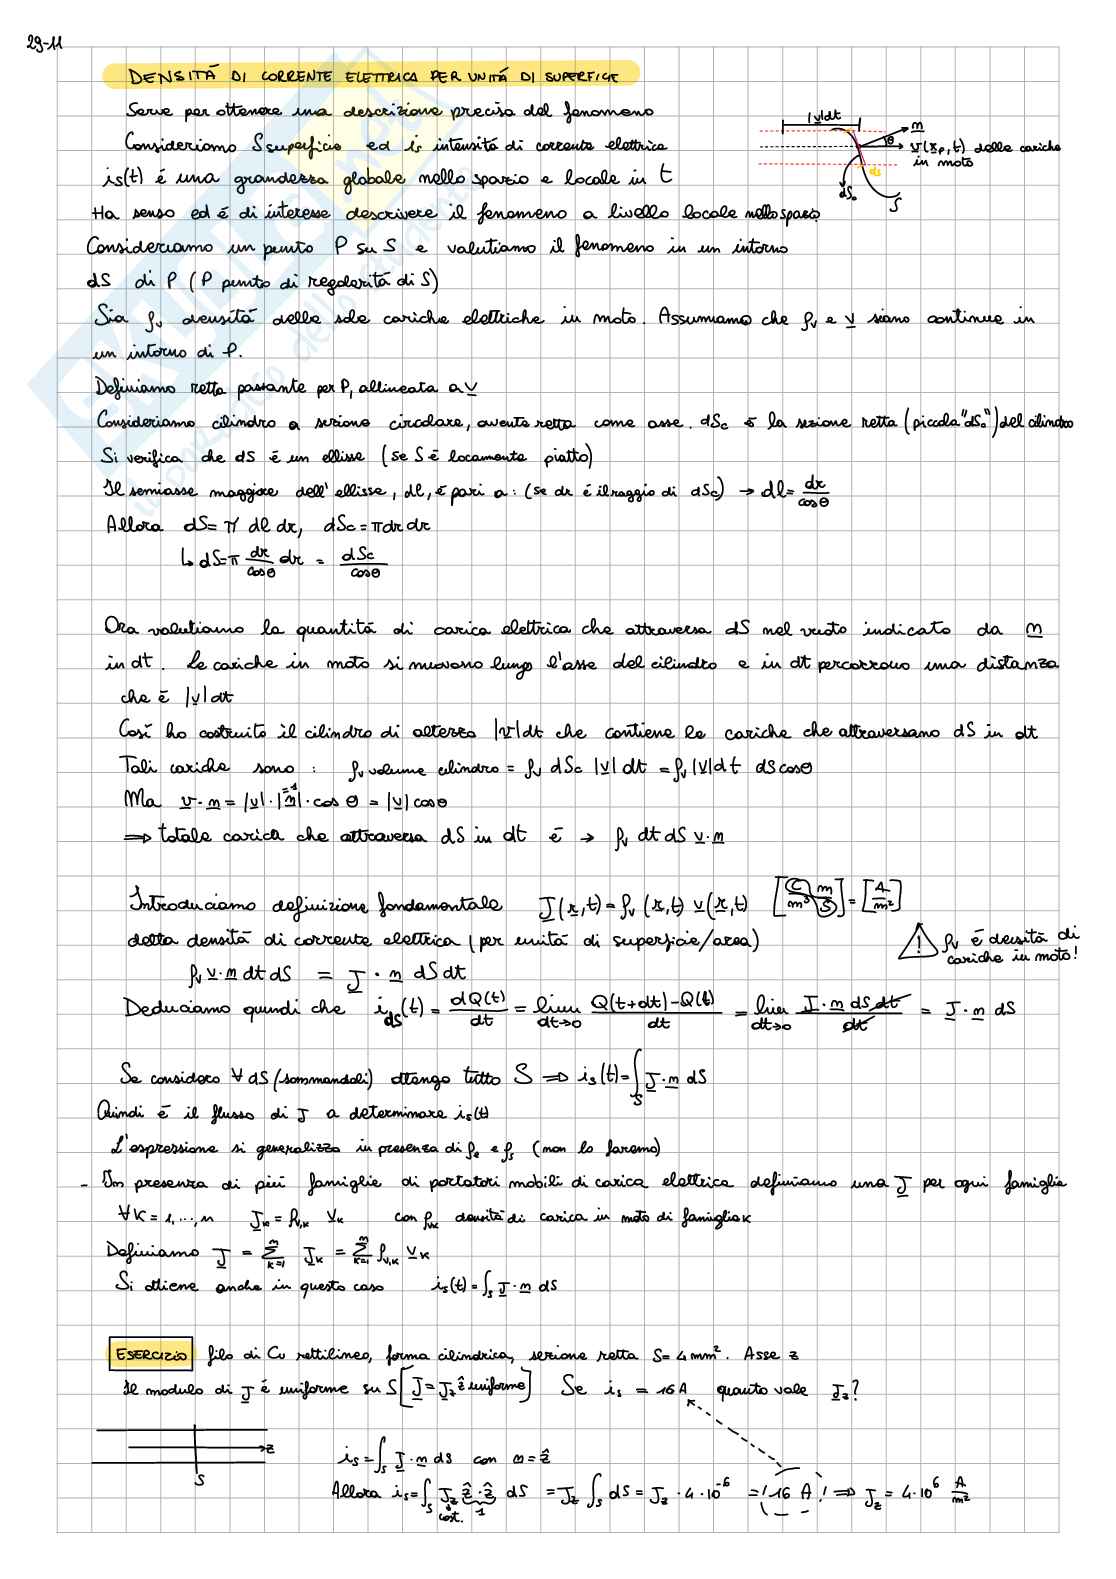 29-11
DENSITÀ DI CORRENTE ELETTRICA PER UNITÀ DI SUPERFICIE
Serve per ottenere una descrizione precisa del fenomeno
Consideriamo S superficie ed is intensità di corrente elettrica
is(t) è una grandezza globale nello spazio e locale in t
Ha senso ed è di interesse descrivere il fenomeno a livello locale nello spazio
|v|dt
n
θ
v(r_P,t) delle cariche
in moto
dS
dS₀
S
Consideriamo un punto P su S e valutiamo il fenomeno in un intorno
dS di P (P punto di regolarità di S)
Sia ρv densità delle sole cariche elettriche in moto. Assumiamo che ρv e v siano continue in
un intorno di P.
Definiamo retta passante per P, allineata a v
Consideriamo cilindro a sezione circolare, avente retta come asse. dSc è la sezione retta (piccola "dS₀") del cilindro
Si verifica che dS è un ellisse (se S è locamente piatto)
Il semiasse maggiore dell'ellisse, dl, è pari a: (se dr è il raggio di dSc) → dl = dr/cosθ
Allora dS = π dl dr, dSc = π dr dr
↳ dS = π dr/cosθ dr = dSc/cosθ
Ora valutiamo la quantità di carica elettrica che attraversa dS nel verso indicato da n
in dt. Le cariche in moto si muovono lungo l'asse del cilindro e in dt percorrono una distanza
che è |v|dt
Così ho costruito il cilindro di altezza |v|dt che contiene le cariche che attraversano dS in dt
Tali cariche sono : ρv volume cilindro = ρv dSc |v| dt = ρv |v|dt dS cosθ
Ma v·n = |v|·|n|·cos θ = |v| cosθ
=1
⇒ totale carica che attraversa dS in dt è → ρv dt dS v·n
Introduciamo definizione fondamentale J(r,t) = ρv(r,t) v(r,t) [C/m³ m/s] = [A/m²]
detta densità di corrente elettrica (per unità di superficie/area)
! ρv è densità di
cariche in moto!
ρv v·n dt dS = J · n dS dt
Deduciamo quindi che i_dS(t) = dQ(t)/dt = lim dt→0 Q(t+dt)-Q(t)/dt = lim dt→0 J·n dS dt/dt = J·n dS
Se considero ∀ dS (sommandoli) ottengo tutto S ⇒ is(t) = ∫_S J·n dS
Quindi è il flusso di J a determinare is(t)
L'espressione si generalizza in presenza di ρe e ρs (non lo faremo)
- In presenza di più famiglie di portatori mobili di carica elettrica definiamo una J per ogni famiglia
∀K = 1,...,n J_K = ρv,K v_K con ρvK densità di carica in moto di famiglia K
Definiamo J = Σ_{K=1}^{n} J_K = Σ_{K=1}^{n} ρv,K v_K
Si ottiene anche in questo caso is(t) = ∫_S J·n dS
ESERCIZIO filo di Cu rettilineo, forma cilindrica, sezione retta S = 4 mm². Asse z
Il modulo di J è uniforme su S [J = Jz ẑ uniforme] Se is = 16 A quanto vale Jz?
z
S
is = ∫_S J·n dS con n = ẑ
Allora is = ∫_S Jz ẑ·ẑ dS = Jz ∫_S dS = Jz · 4·10⁻⁶ =! 16 A ! ⇒ Jz = 4·10⁶ A/m²
cost. 1